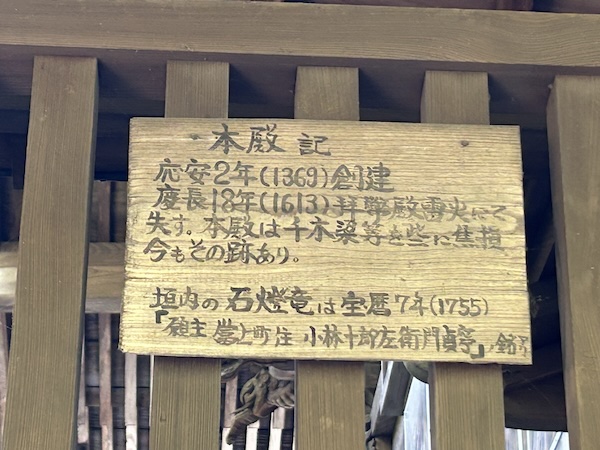 本殿記
応安2年(1369)創建
慶長18年(1613)拝幣殿雷火にて
失す。本殿は千木梁等を些に焦損
今もその跡あり。
垣内の石燈竜は宝暦7年(1755)
「願主 営上町住 小林十郎左衛門貞亭」ノ銘アリ